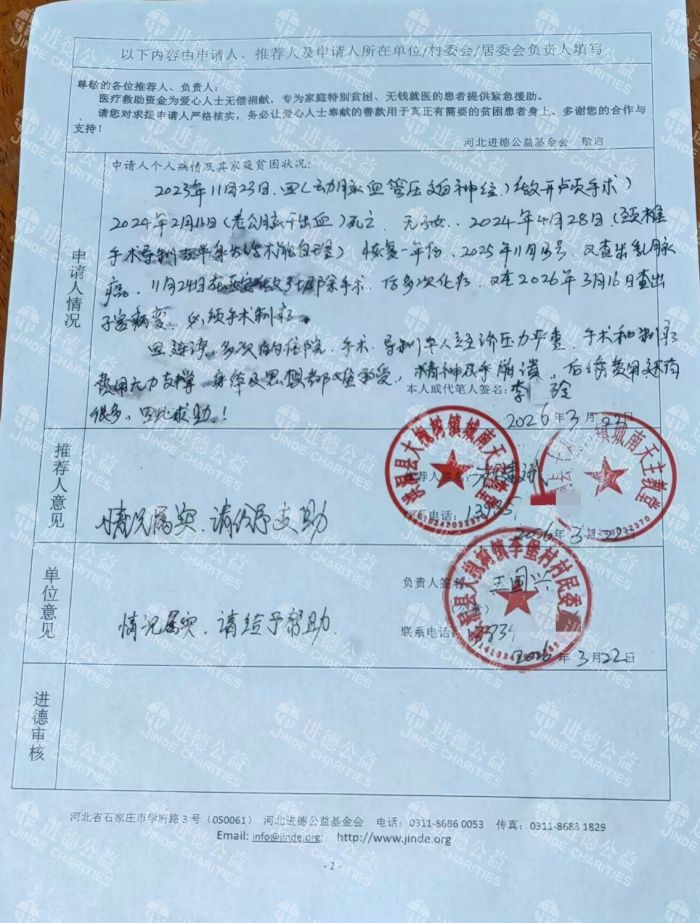 以下内容由申请人、推荐人及申请人所在单位/村委会/居委会负责人填写
尊敬的各位推荐人、负责人：
医疗救助资金为爱心人士无偿捐献，专为家庭特别贫困、无钱就医的患者提供紧急援助。
请您对求援申请人严格核实，务必让爱心人士奉献的善款用于真正有需要的贫困患者身上。多谢您的合作与
支持！
河北进德公益基金会 敬启
申请人情况
申请人个人病情及其家庭贫困状况：
2023年11月23日，因（动脉血管压迫神经）做开颅手术）
2024年2月11日（老公脑干出血）死亡，无子女，2024年4月28日（颈椎
手术导制 ）恢复一年份，2025年11月 号，又查出乳腺
癌，11月24日在西安做了切除手术，后多次化疗，又在2026年3月16日查出
子宫病变，必须手术制疗
因连续，多次的住院，手术，导制本人经济压力严重，手术和制疗
费用无力支撑，身体及思想都 承受，精神及乎崩溃，后续费用
很多，因此求助！
本人或代笔人签名：李 玲
2026年3月22日
推荐人意见
情况属实，请给予支助
洪洞县大槐树镇城南天主教堂
联系电话：13935
2026年3月22日
单位意见
情况属实，请给予帮助.
负责人签名：王国兴
洪洞县大槐树镇李堡村村民委员会
联系电话：3834
2026年3月22日
进德审核
河北省石家庄市学府路3号（050061） 河北进德公益基金会 电话：0311-8686 0053 传真：0311-8683 1829
Email: info@jinde.org; http://www.jinde.org
- 2 -
进德公益
JINDE CHARITIES